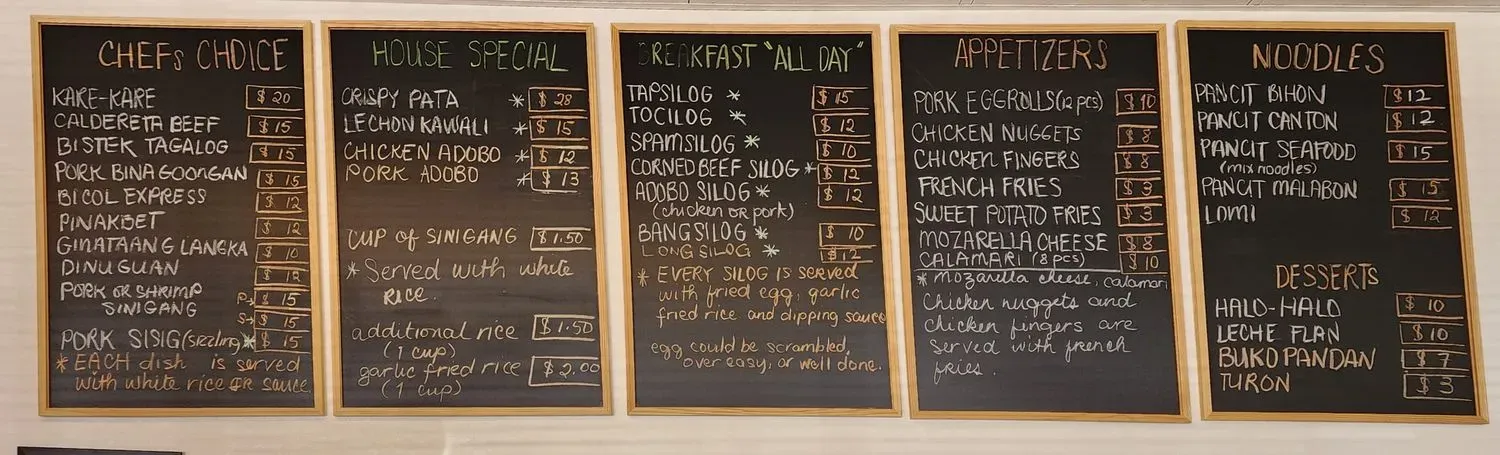 CHEFs CHOICE
KARE-KARE $ 20
CALDERETA BEEF $ 15
BISTEK TAGALOG $ 15
PORK BINAGOONGAN $ 15
BICOL EXPRESS $ 12
PINAKBET $ 12
GINATAANG LANGKA $ 10
DINUGUAN $ 12
PORK OR SHRIMP P→ $ 15
SINIGANG S→ $ 15
PORK SISIG (sizzling)* $ 15
* EACH dish is served
with white rice OR sauce.
HOUSE SPECIAL
CRISPY PATA * $ 28
LECHON KAWALI * $ 15
CHICKEN ADOBO * $ 12
PORK ADOBO * $ 13
CUP of SINIGANG $1.50
* Served with white
RICE.
additional rice $1.50
(1 cup)
garlic fried rice $2.00
(1 cup)
BREAKFAST "ALL DAY"
TAPSILOG * $ 15
TOCILOG * $ 12
SPAMSILOG * $ 10
CORNED BEEF SILOG * $ 12
ADOBO SILOG * $ 12
(chicken or pork)
BANGSILOG * $ 10
LONGSILOG * $12
* EVERY SILOG is served
with fried egg, garlic
fried rice and dipping sauce
egg could be scrambled,
over easy, or well done.
APPETIZERS
PORK EGGROLLS (12 pcs) $ 10
CHICKEN NUGGETS $ 8
CHICKEN FINGERS $ 8
FRENCH FRIES $ 3
SWEET POTATO FRIES $ 3
MOZARELLA CHEESE $ 8
CALAMARI (8 pcs) $ 10
* mozarella cheese, calamari
Chicken nuggets and
chicken fingers are
served with french
fries.
NOODLES
PANCIT BIHON $12
PANCIT CANTON $12
PANCIT SEAFOOD $15
(mix noodles)
PANCIT MALABON $ 15
LOMI $ 12
DESSERTS
HALO-HALO $ 10
LECHE FLAN $10
BUKO PANDAN $ 7
TURON $ 3